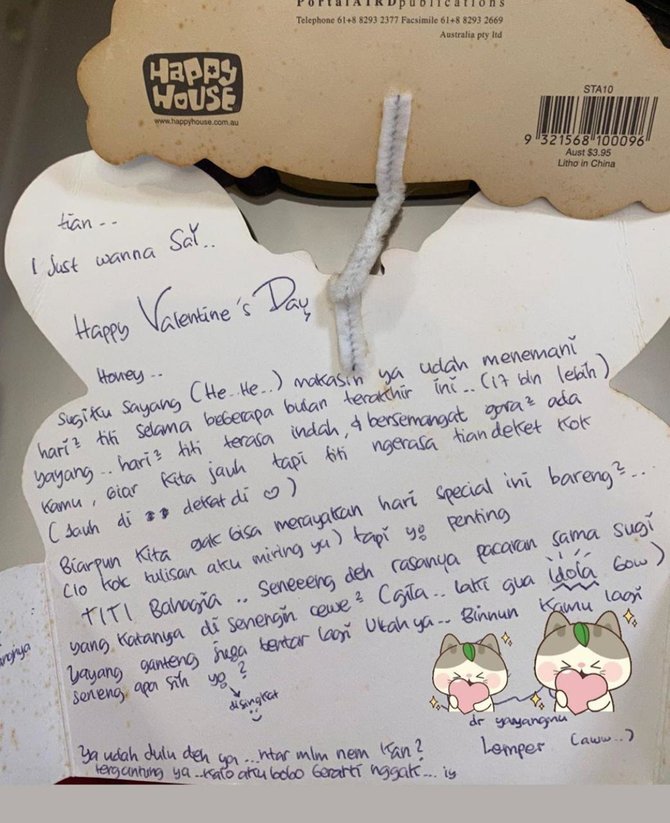 PortalAIRDpublications
Telephone 61+8 8293 2377 Facsimile 61+8 8293 2669
Australia pty ltd
Happy
House
www.happyhouse.com.au
STA10
9 321568 100096
Aust $3.95
Litho in China
tian--
I Just wanna SaY..
Happy Valentine's Day
Honey--
Sugiku Sayang (He..He..) makasih ya udah menemani
hari² titi selama beberapa bulan terakhir ini.. (17 bln lebih)
yayang.. hari² titi terasa indah, & bersemangat gara² ada
kamu, biar kita jauh tapi titi ngerasa tian deket kok
(Jauh di dekat di ♡)
Biarpun kita gak bisa merayakan hari special ini bareng²...
(lo kok tulisan aku miring ya) tapi yg penting
TITI Bahagia.. Seneeeng deh rasanya pacaran sama sugi
yang katanya di senengin cewe² (gila.. laki gua idola bow)
Yayang ganteng juga bentar lagi Ultah ya.. Binnun kamu lagi
seneng apa sih yg?
disingkat
dr yayangmu
Lemper (aww..)
Ya udah dulu deh ya...ntar mlm nem kan?
tergantung ya..kalo aku bobo berarti nggak...